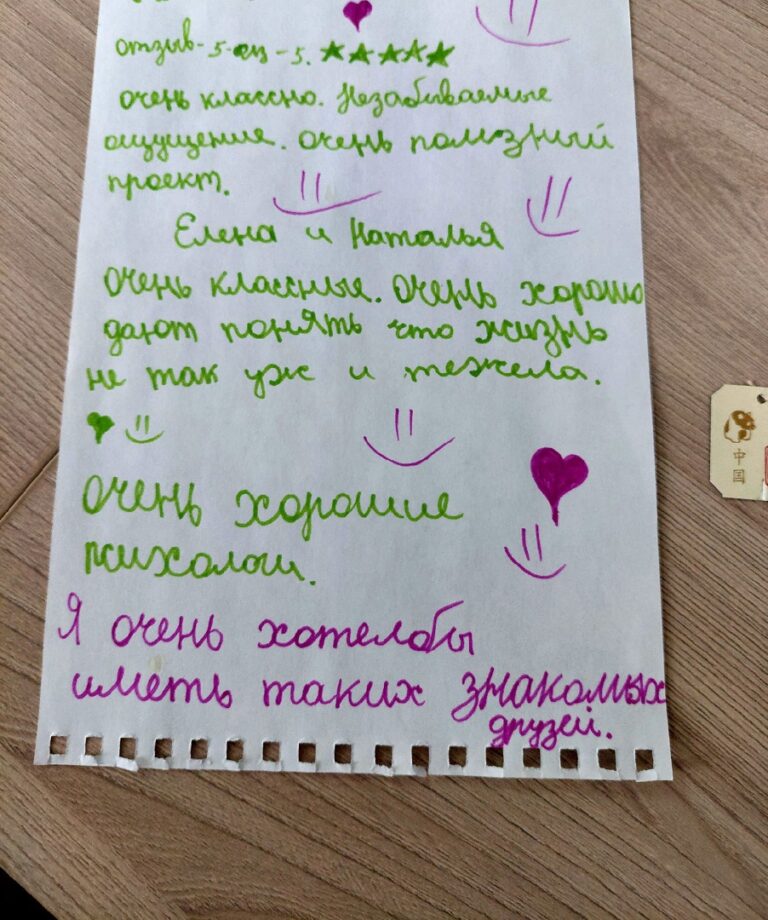 отзыв-5-оц-5. ★★★★★
очень классно. Незабываемые
ощущщения. очень полнзный
проект.
Елена и Наталья
Очень классные. Очень хорошо
дают понять что жизнь
не так уж и тежела.
Очень хорошие
психологи.
Я очень хотелабы
иметь таких знакомых
друзей.
中
国